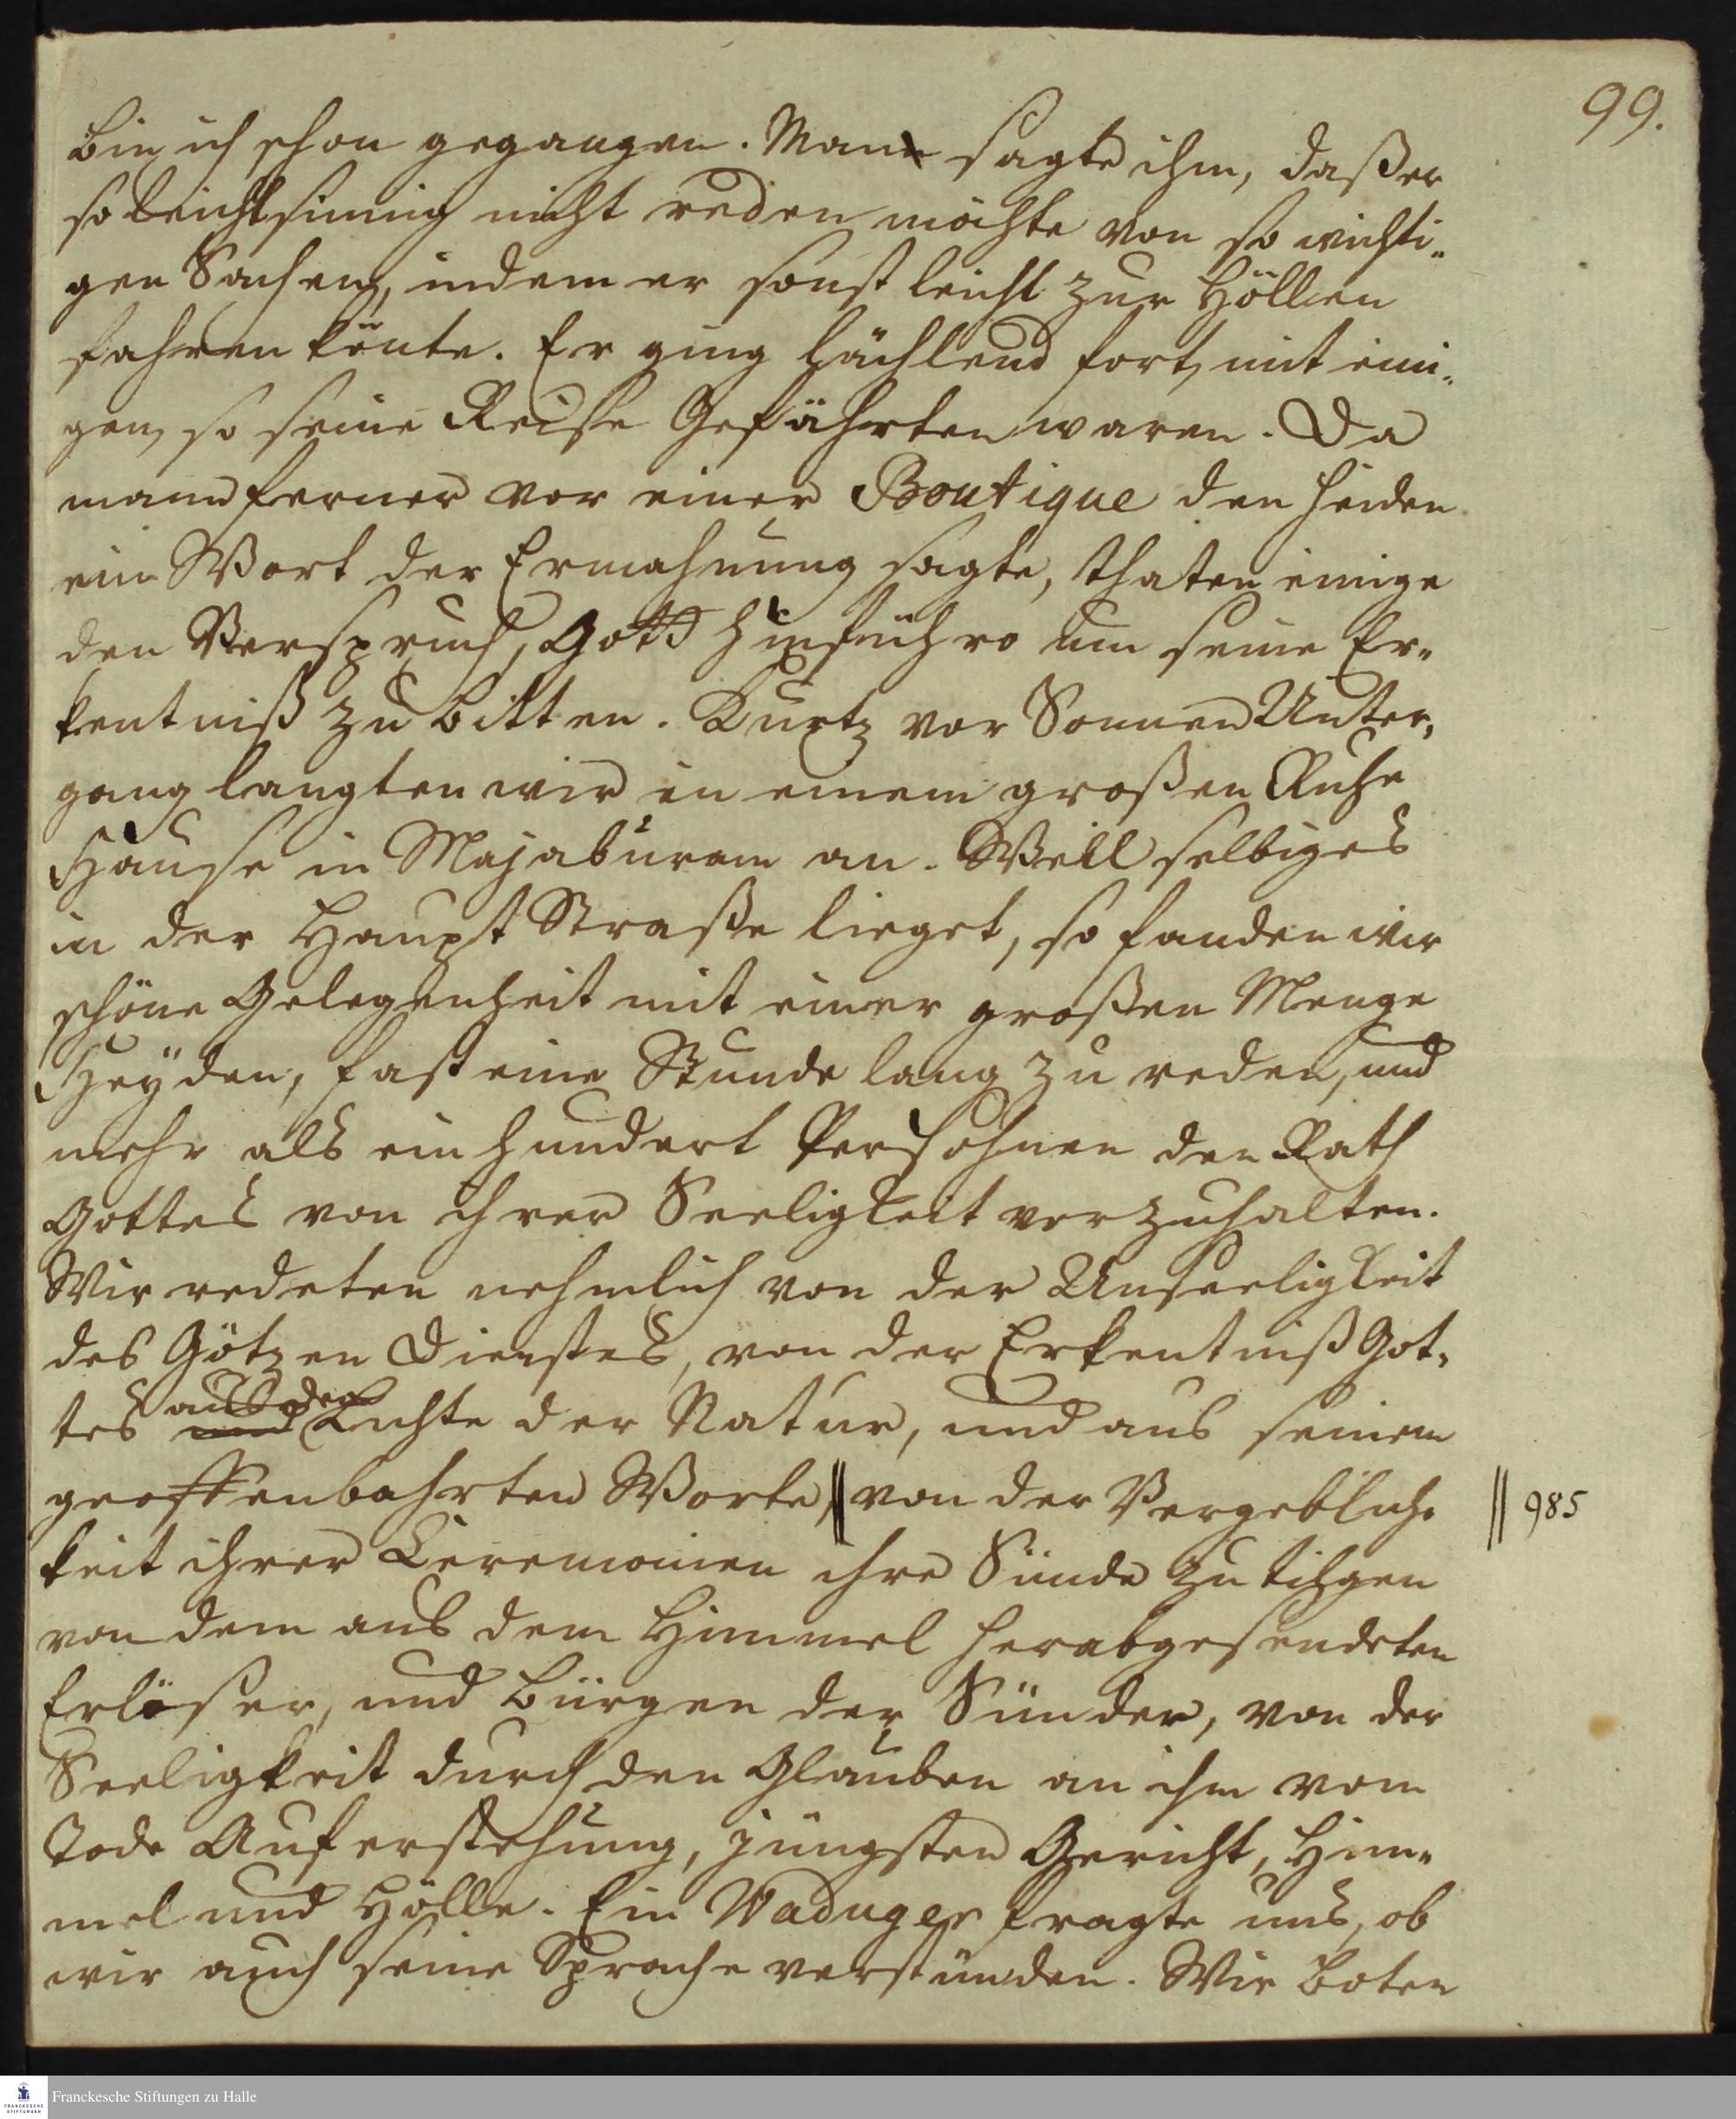 99.
bin ich schon gegangen. Man sagte ihm, daß er
so leichtsinnig nicht reden möchte von so wichti-
gen Sachen, indem er sonst leicht zur Höllen
fahren könte. Er ging lächlend fort, mit eini-
gen, so seine Reise Gefährten waren. Da
mann ferner vor einer Boutique den Heiden
ein Wort der Ermahnung sagte, thaten einige
den Verspruch, Gott hinführo um seine Er-
kentniß zu bitten. Kurtz vor Sonnen Unter-
gang langten wir in einem großen Ruhe
Hause in Majaburam an. Weill selbiges
in der Haupt Straße lieget, so fanden wir
schöne Gelegenheit mit einer großen Menge
Heÿden, fast eine Stunde lang zu reden, und
mehr als ein hundert Persohnen den Rath
Gottes von ihrer Seeligkeit vorzuhalten.
Wir redeten nehmlich von der Unseeligkeit
des Götzen Dienstes, von der Erkentniß Got-
aus dem
tes und Lichte der Natur, und aus seinem
geoffenbahrten Worte, || von der Vergeblich- || 985
keit ihrer Ceremonien ihre Sünde zu tilgen
von dem aus dem Himmel herabgesendeten
Erlöser, und Bürgen der Sünder, von der
Seeligkeit durch den Glauben an ihm vom
Tode Auferstehung, jüngsten Gericht, Him-
mel und Hölle. Ein Waduger fragte uns, ob
wir auch seine Sprache verstünden. Wir boten
Franckesche Stiftungen zu Halle
FRANCKESCHE
STIFTUNGEN